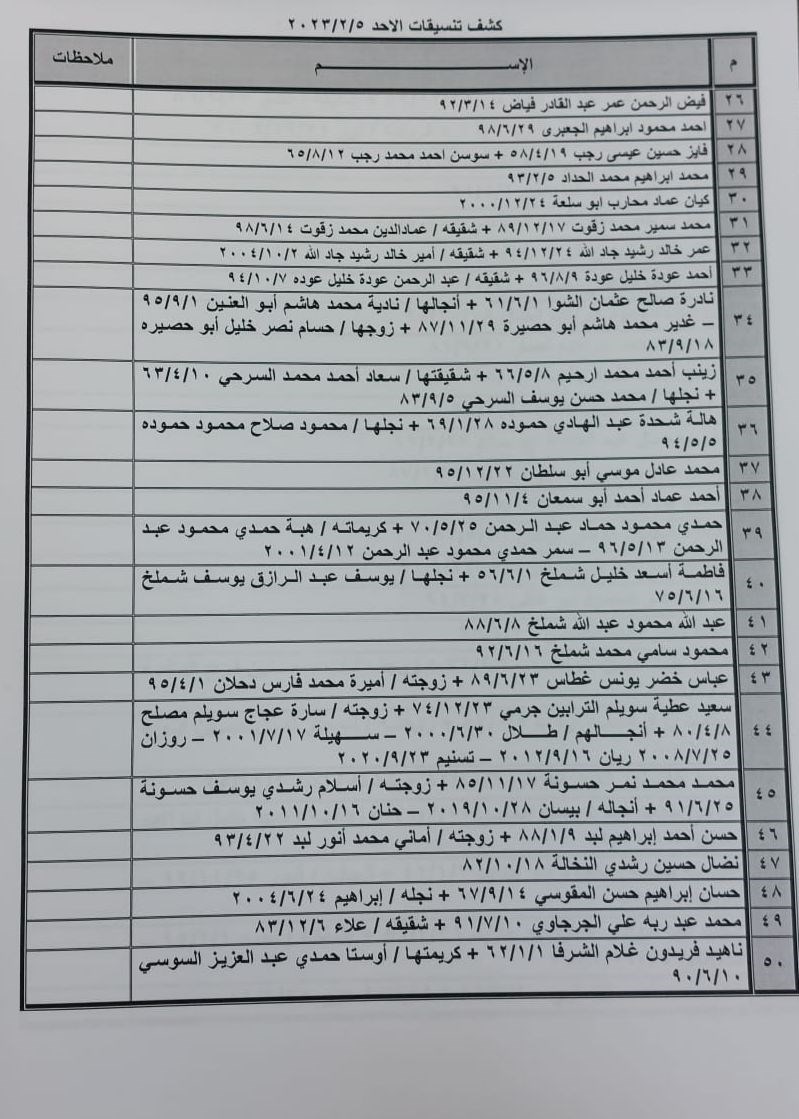 كشف تنسيقات الاحد ٢٠٢٣/٢/٥
م الإســـــــــم ملاحظات
٢٦ فيض الرحمن عمر عبد القادر فياض ٩٢/٣/١٤
٢٧ احمد محمود ابراهيم الجعبرى ٩٨/٦/٢٩
٢٨ فايز حسين عيسى رجب ٥٨/٤/١٩ + سوسن احمد محمد رجب ٦٥/٨/١٢
٢٩ محمد ابراهيم محمد الحداد ٩٣/٢/٥
٣٠ كيان عماد محارب ابو سلعة ٢٠٠٠/١٢/٢٤
٣١ محمد سمير محمد زقوت ٨٩/١٢/١٧ + شقيقه / عمادالدين محمد زقوت ٩٨/٦/١٤
٣٢ عمر خالد رشيد جاد الله ٩٤/١٢/٢٤ + شقيقه / أمير خالد رشيد جاد الله ٢٠٠٤/١٠/٢
٣٣ أحمد عودة خليل عودة ٩٦/٨/٩ + شقيقه / عبد الرحمن عودة خليل عوده ٩٤/١٠/٧
٣٤ نادرة صالح عثمان الشوا ٦١/٦/١ + أنجالها / نادية محمد هاشم أبو العنين ٩٥/٩/١
– غدير محمد هاشم أبو حصيرة ٨٧/١١/٢٩ + زوجها / حسام نصر خليل أبو حصيره
٨٣/٩/١٨
٣٥ زينب أحمد محمد ارحيم ٦٦/٥/٨ + شقيقتها / سعاد أحمد محمد السرحي ٦٣/٤/١٠
+ نجلها / محمد حسن يوسف السرحي ٨٣/٩/٥
٣٦ هالة شحدة عبد الهادي حموده ٦٩/١/٢٨ + نجلها / محمود صلاح محمود حموده
٩٤/٥/٥
٣٧ محمد عادل موسي أبو سلطان ٩٥/١٢/٢٢
٣٨ أحمد عماد أحمد أبو سمعان ٩٥/١١/٤
٣٩ حمدي محمود حماد عبد الرحمن ٧٠/٥/٢٥ + كريماته / هبة حمدي محمود عبد
الرحمن ٩٦/٥/١٣ – سمر حمدي محمود عبد الرحمن ٢٠٠١/٤/١٢
٤٠ فاطمة أسعد خليل شملخ ٥٦/٦/١ + نجلها / يوسف عبد الرازق يوسف شملخ
٧٥/٦/١٦
٤١ عبد الله محمود عبد الله شملخ ٨٨/٦/٨
٤٢ محمود سامي محمد شملخ ٩٢/٦/١٦
٤٣ عباس خضر يونس غطاس ٨٩/٦/٢٣ + زوجته / أميرة محمد فارس دحلان ٩٥/٤/١
٤٤ سعيد عطية سويلم الترابين جرمي ٧٤/١٢/٢٣ + زوجته / سارة عجاج سويلم مصلح
٨٠/٤/٨ + أنجالهم / طلال ٢٠٠٠/٦/٣٠ – سهيلة ٢٠٠١/٧/١٧ – روزان
٢٠٠٨/٧/٢٥ ريان ٢٠١٢/٩/١٦ – تسنيم ٢٠٢٠/٩/٢٣
٤٥ محمد محمد نمر حسونة ٨٥/١١/١٧ + زوجته / أسلام رشدي يوسف حسونة
٩١/٦/٢٥ + أنجاله / بيسان ٢٠١٩/١٠/٢٨ – حنان ٢٠١١/١٠/١٦
٤٦ حسن أحمد إبراهيم لبد ٨٨/١/٩ + زوجته / أماني محمد أنور لبد ٩٣/٤/٢٢
٤٧ نضال حسين رشدي النخالة ٨٢/١٠/١٨
٤٨ حسان إبراهيم حسن المقوسي ٦٧/٩/١٤ + نجله / إبراهيم ٢٠٠٤/٦/٢٤
٤٩ محمد عبد ربه علي الجرجاوي ٩١/٧/١٠ + شقيقه / علاء ٨٣/١٢/٦
٥٠ ناهيد فريدون غلام الشرفا ٦٢/١/١ + كريمتها / أوستا حمدي عبد العزيز السوسي
٩٠/٦/١٠